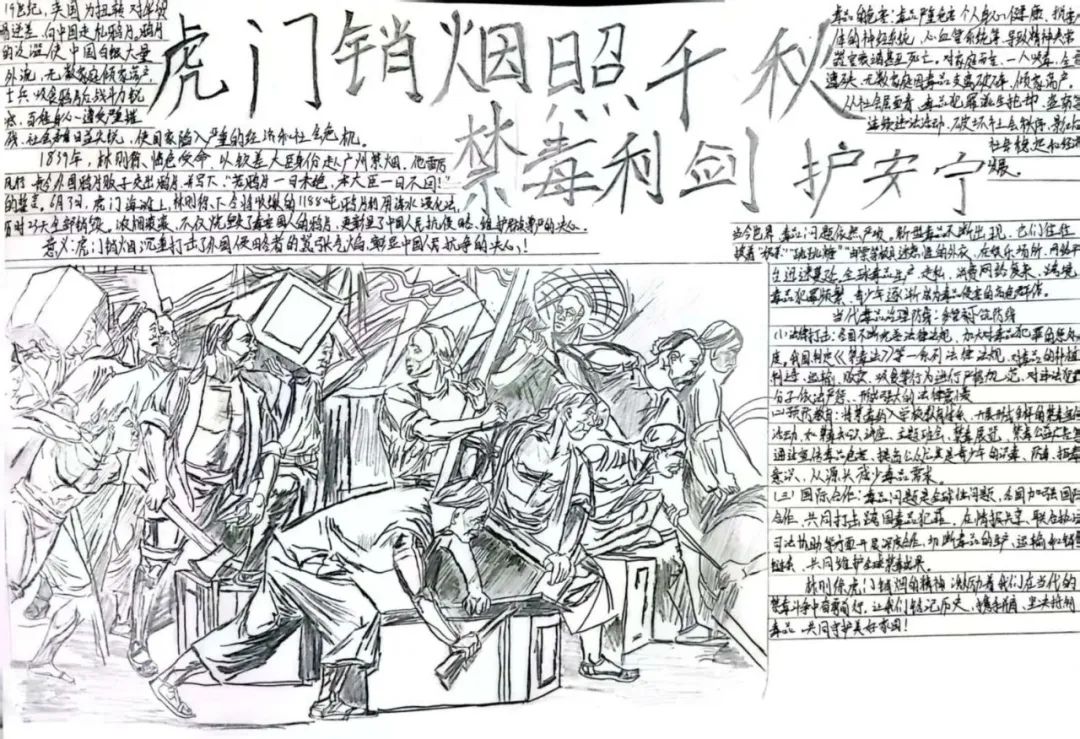 虎门销烟照千秋
禁毒利剑护安宁
19世纪,英国为扭转对华贸
易逆差,向中国走私鸦片。鸦片
的泛滥使中国白银大量
外流,无数家庭倾家荡产,
士兵吸食鸦片后战斗力锐
减,百姓身心遭受摧
残,社会矛盾日益尖锐,使国家陷入严重的经济和社会危机。
1839年,林则徐 使命,以钦差大臣身份赴广州禁烟,他雷厉
风行, 外国鸦片贩子交出鸦片,并写下“若鸦片一日未绝,本大臣一日不回!”
的誓言。6月3日,虎门海滩上,林则徐下令将收缴的1188吨鸦片利用海水浸化法,
历时23天全部销毁。浓烟滚滚,不仅烧毁了毒害国人的鸦片,更彰显了中国人民抗侵略、维护民族尊严的决心。
意义:虎门销烟沉重打击了外国侵略者的嚣张气焰,彰显中国人民抗争的决心!
毒品的危害:毒品严重危害个人身心健康,损害人
体的神经系统,心血管系统等,导致精神失常
器官衰竭甚至死亡。对家庭而言,一人吸毒,全家
遭殃,无数家庭因毒品支离破碎,倾家荡产。
从社会层面看,毒品犯罪滋生抢劫、盗窃等
违法活动,破坏社会秩序,影响
社会稳定和经济
发展。
当今世界,毒品问题依然严峻。新型毒品不断出现,它们往往
披着“奶茶”“跳跳糖”“邮票等极具迷惑性的外衣,在娱乐场所、网络平
台迅速蔓延,全球毒品生产、走私、消费网络复杂,跨境
毒品犯罪频繁,青少年逐渐成为毒品侵害的高危群体。
当代毒品治理防御:多管齐下筑防线
(一)法律打击:各国不断完善法律法规,加大对毒品犯罪的惩处力
度,我国制定《禁毒法》等一系列法律法规,对毒品的种植
制造、运输、贩卖、吸食等行为进行严格规范,对违法犯罪
分子依法严惩,形成强大的法律震慑
(二)预防教育:将禁毒纳入学校教育体系,开展形式多样的禁毒宣传
活动,如禁毒知识讲座、主题班会、禁毒展览,禁毒公益广告等
普及宣传毒品危害,提高公众尤其是青少年的识毒、防毒、拒毒
意识,从源头减少毒品需求。
(三)国际合作:毒品问题是全球性问题,各国加强国际
合作,共同打击跨国毒品犯罪,在情报共享、联合执法
司法协助等方面开展深度合作,切断毒品的生产、运输和销售
链条,共同维护全球禁毒成果。
林则徐虎门销烟的精神激励着我们在当代的
禁毒斗争中奋勇前行,让我们铭记历史,携手并肩,坚决抵制
毒品,共同守护美好家园!